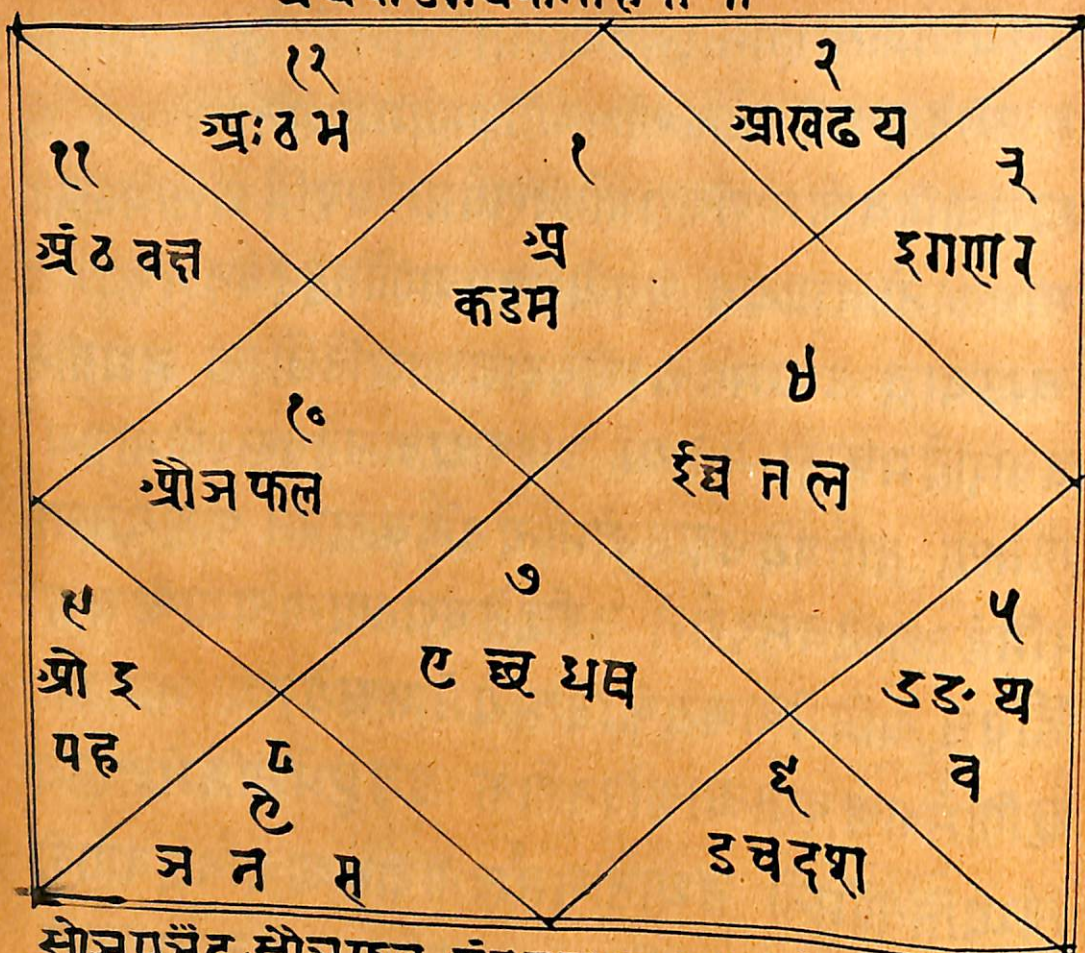 १२
अः ठ भ
२
आ ख ढ य
११
अं ठ व क्ष
१
अ
क ड म
३
इ ग ण र
१०
औ ञ फ ल
४
ई घ त ल
९
ओ इ
प ह
७
ए छ ध ष
५
उ ङ थ
व
८
ऐ
ञ न स
६
ड च द श